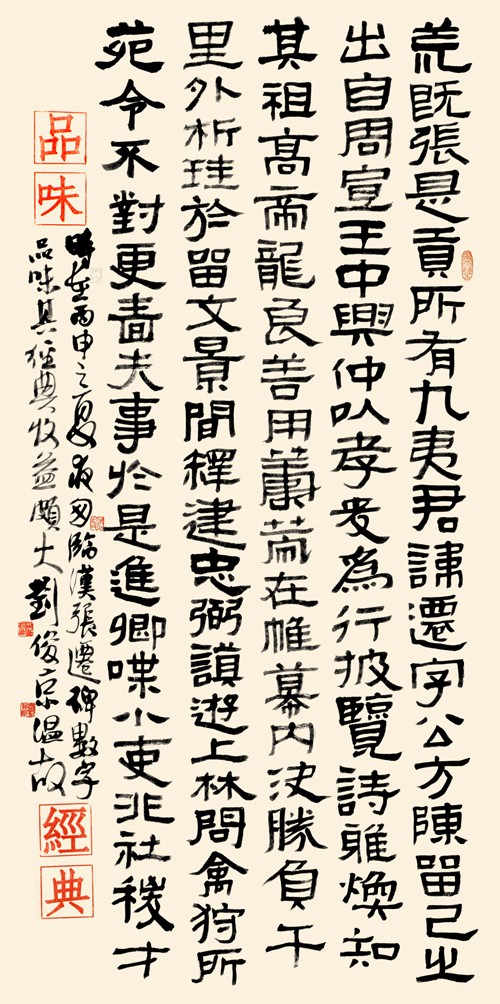 荒既張是貢所有九夷君諱遷字公方陳留己之
出自周宣王中興仲以孝友為行披覽詩雅煥知
其祖高帝龍良善用籌策在帷幕內決勝負千
里外析珪於留文景間釋建忠弼謨遊上林問禽狩所
苑令不對更嗇夫事於是進卿喋小吏非社稷才
品味
時至丙申之夏夜匆臨漢張遷碑數字
品味其經典收益頗大劉俊京溫故
經典